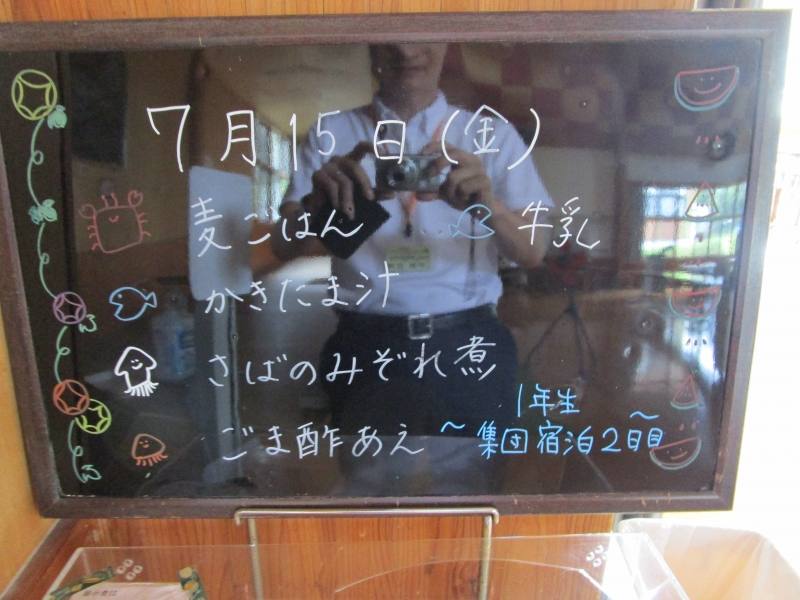 7月15日(金)
麦ごはん 牛乳
かきたま汁
さばのみぞれ煮
ごま酢あえ
1年生
~集団宿泊2日目~